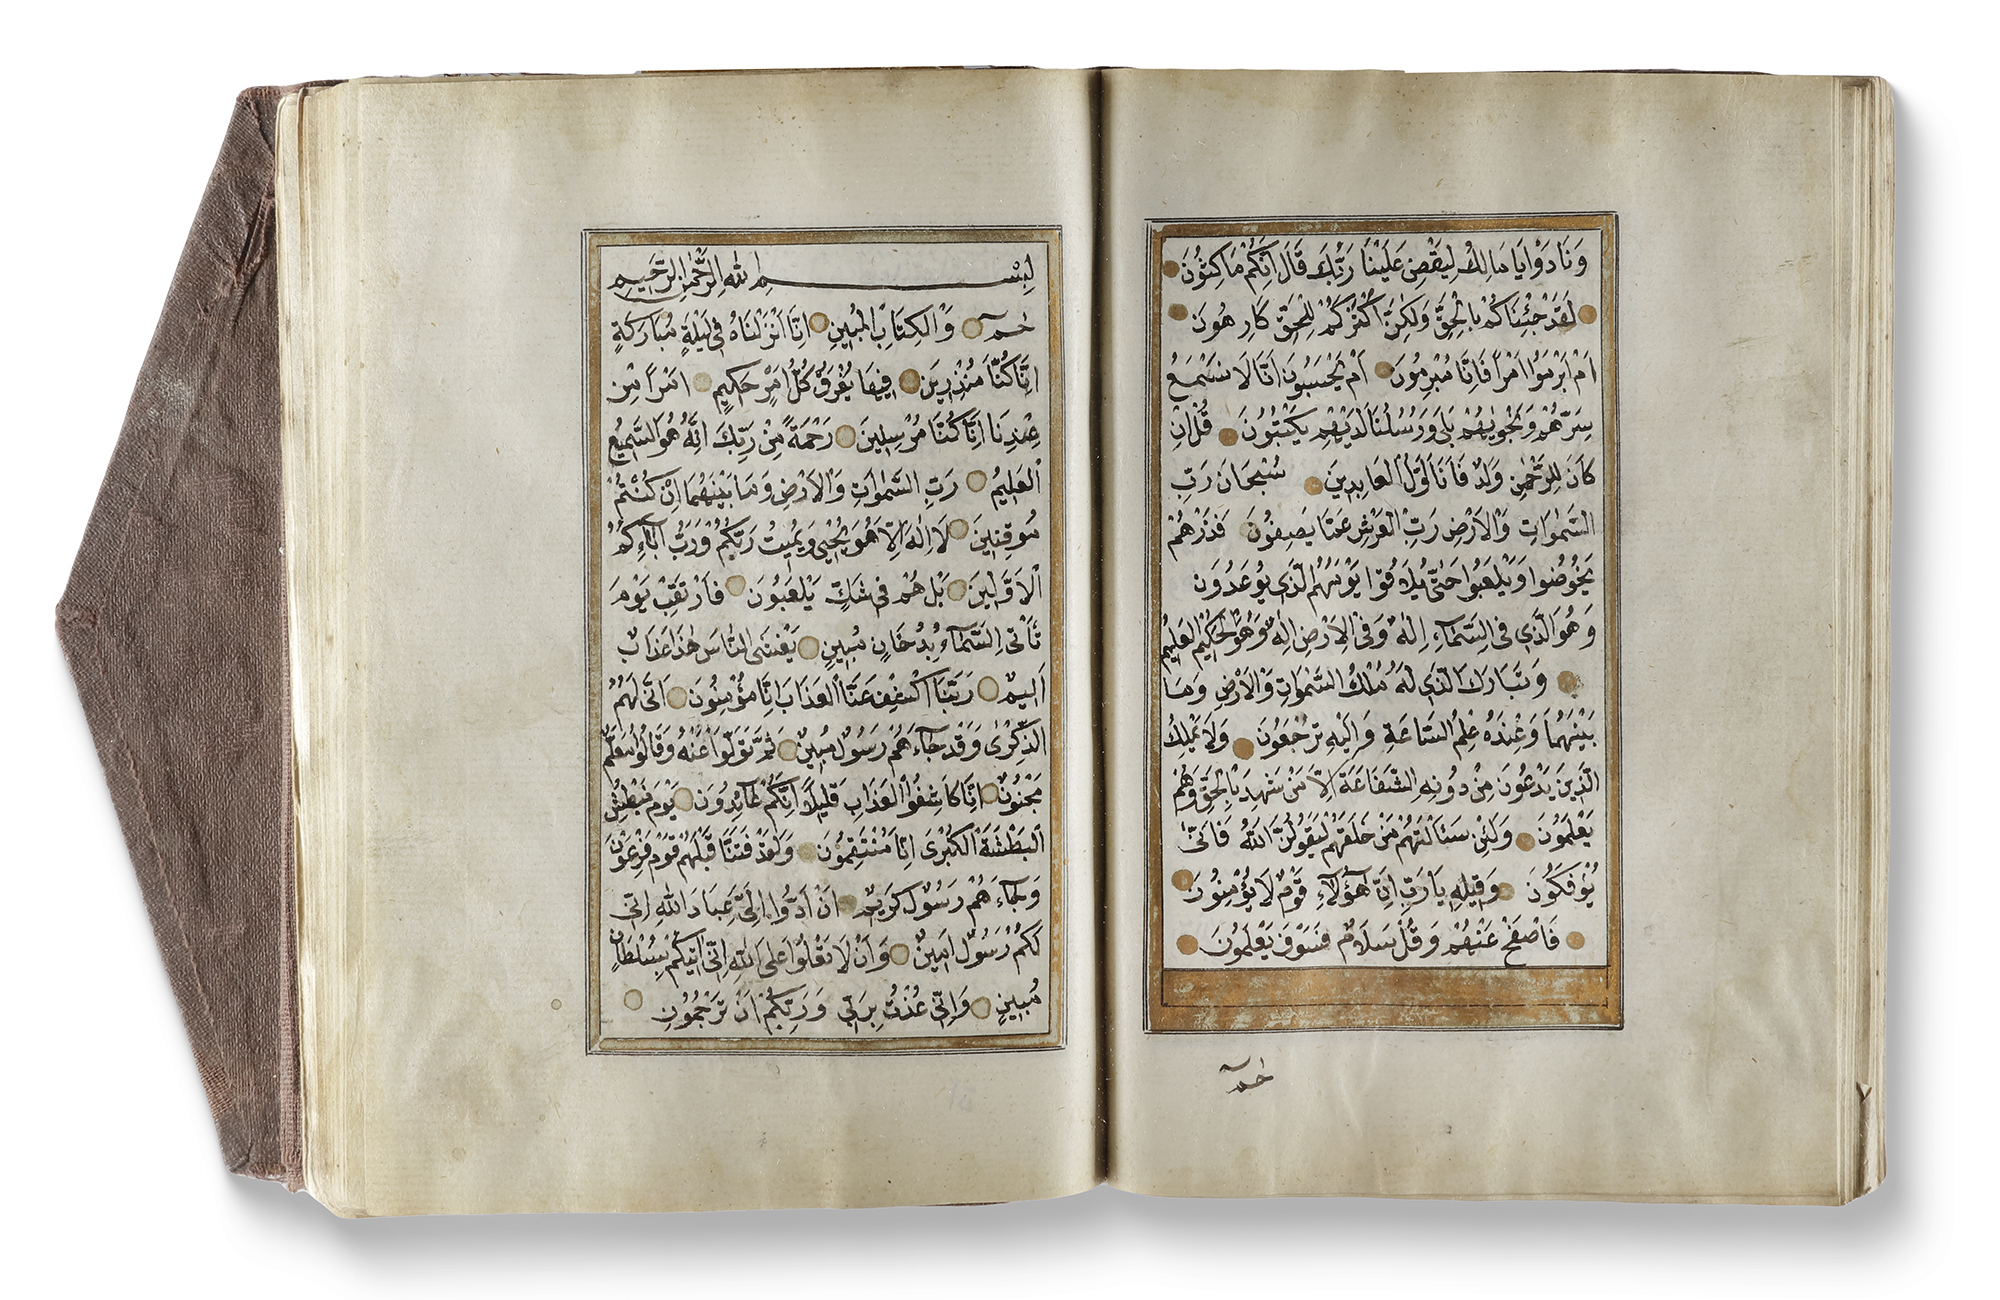 وَنَادَوْا يَا مَالِكُ لِيَقْضِ عَلَيْنَا رَبُّكَ قَالَ اِنَّكُمْ مَاكِثُونَ
لَقَدْ جِئْنَاكُمْ بِالْحَقِّ وَلٰكِنَّ اَكْثَرَكُمْ لِلْحَقِّ كَارِهُونَ
اَمْ اَبْرَمُوا اَمْرًا فَاِنَّا مُبْرِمُونَ اَمْ يَحْسَبُونَ اَنَّا لَا نَسْمَعُ
سِرَّهُمْ وَنَجْوٰيهُمْ بَلٰى وَرُسُلُنَا لَدَيْهِمْ يَكْتُبُونَ قُلْ اِنْ
كَانَ لِلرَّحْمٰنِ وَلَدٌ فَاَنَا اَوَّلُ الْعَابِدِينَ سُبْحَانَ رَبِّ
السَّمٰوَاتِ وَالْاَرْضِ رَبِّ الْعَرْشِ عَمَّا يَصِفُونَ فَذَرْهُمْ
يَخُوضُوا وَيَلْعَبُوا حَتّٰى يُلَاقُوا يَوْمَهُمُ الَّذِي يُوعَدُونَ
وَهُوَ الَّذِي فِي السَّمَاءِ اِلٰهٌ وَفِي الْاَرْضِ اِلٰهٌ وَهُوَ الْحَكِيمُ الْعَلِيمُ
وَتَبَارَكَ الَّذِي لَهُ مُلْكُ السَّمٰوَاتِ وَالْاَرْضِ وَمَا
بَيْنَهُمَا وَعِنْدَهُ عِلْمُ السَّاعَةِ وَاِلَيْهِ تُرْجَعُونَ وَلَا يَمْلِكُ
الَّذِينَ يَدْعُونَ مِنْ دُونِهِ الشَّفَاعَةَ اِلَّا مَنْ شَهِدَ بِالْحَقِّ وَهُمْ
يَعْلَمُونَ وَلَئِنْ سَاَلْتَهُمْ مَنْ خَلَقَهُمْ لَيَقُولُنَّ اللّٰهُ فَاَنّٰى
يُؤْفَكُونَ وَقِيلِهِ يَا رَبِّ اِنَّ هٰؤُلَاءِ قَوْمٌ لَا يُؤْمِنُونَ
فَاصْفَحْ عَنْهُمْ وَقُلْ سَلَامٌ فَسَوْفَ يَعْلَمُونَ
حٰمٓ
بِسْمِ اللّٰهِ الرَّحْمٰنِ الرَّحِيمِ
حٰمٓ وَالْكِتَابِ الْمُبِينِ اِنَّا اَنْزَلْنَاهُ فِي لَيْلَةٍ مُبَارَكَةٍ
اِنَّا كُنَّا مُنْذِرِينَ فِيهَا يُفْرَقُ كُلُّ اَمْرٍ حَكِيمٍ اَمْرًا مِنْ
عِنْدِنَا اِنَّا كُنَّا مُرْسِلِينَ رَحْمَةً مِنْ رَبِّكَ اِنَّهُ هُوَ السَّمِيعُ
الْعَلِيمُ رَبِّ السَّمٰوَاتِ وَالْاَرْضِ وَمَا بَيْنَهُمَا اِنْ كُنْتُمْ
مُوقِنِينَ لَا اِلٰهَ اِلَّا هُوَ يُحْيِي وَيُمِيتُ رَبُّكُمْ وَرَبُّ اٰبَائِكُمُ
الْاَوَّلِينَ بَلْ هُمْ فِي شَكٍّ يَلْعَبُونَ فَارْتَقِبْ يَوْمَ
تَأْتِي السَّمَاءُ بِدُخَانٍ مُبِينٍ يَغْشَى النَّاسَ هٰذَا عَذَابٌ
اَلِيمٌ رَبَّنَا اكْشِفْ عَنَّا الْعَذَابَ اِنَّا مُؤْمِنُونَ اَنّٰى لَهُمُ
الذِّكْرٰى وَقَدْ جَاءَهُمْ رَسُولٌ مُبِينٌ ثُمَّ تَوَلَّوْا عَنْهُ وَقَالُوا مُعَلَّمٌ
مَجْنُونٌ اِنَّا كَاشِفُوا الْعَذَابِ قَلِيلًا اِنَّكُمْ عَائِدُونَ يَوْمَ نَبْطِشُ
الْبَطْشَةَ الْكُبْرٰى اِنَّا مُنْتَقِمُونَ وَلَقَدْ فَتَنَّا قَبْلَهُمْ قَوْمَ فِرْعَوْنَ
وَجَاءَهُمْ رَسُولٌ كَرِيمٌ اَنْ اَدُّوا اِلَيَّ عِبَادَ اللّٰهِ اِنِّي
لَكُمْ رَسُولٌ اَمِينٌ وَاَنْ لَا تَعْلُوا عَلَى اللّٰهِ اِنِّي اٰتِيكُمْ بِسُلْطَانٍ
مُبِينٍ وَاِنِّي عُذْتُ بِرَبِّي وَرَبِّكُمْ اَنْ تَرْجُمُونِ